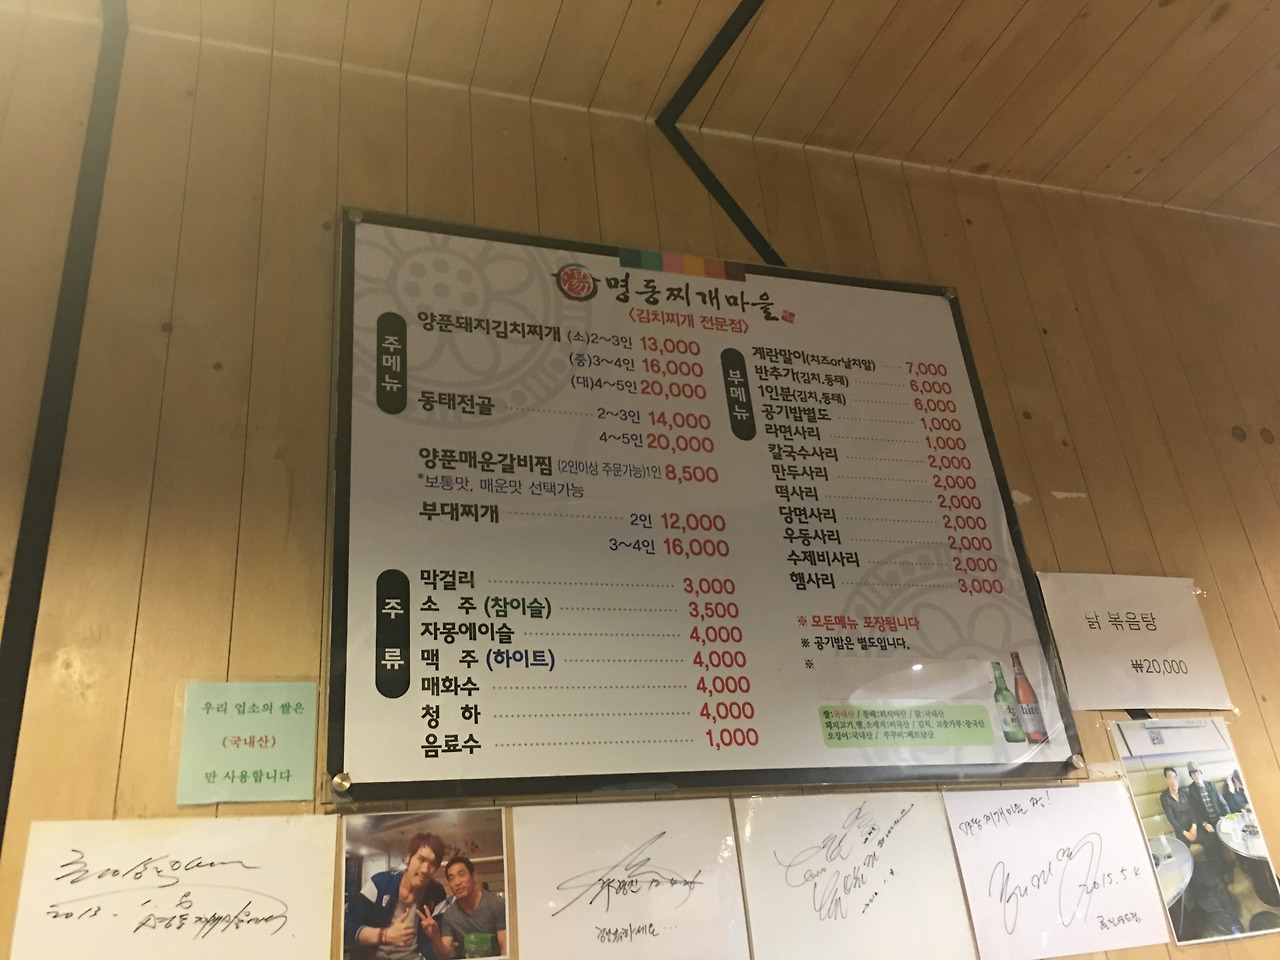 湯 명동찌개마을
<김치찌개 전문점>
주메뉴
양푼돼지김치찌개 (소)2~3인 13,000
(중)3~4인 16,000
(대)4~5인 20,000
동태전골 2~3인 14,000
4~5인 20,000
양푼매운갈비찜 (2인이상 주문가능)1인 8,500
*보통맛, 매운맛 선택가능
부대찌개 2인 12,000
3~4인 16,000
주류
막걸리 3,000
소 주 (참이슬) 3,500
자몽에이슬 4,000
맥 주 (하이트) 4,000
매화수 4,000
청 하 4,000
음료수 1,000
부메뉴
계란말이(치즈or날치알) 7,000
반추가(김치,동태) 6,000
1인분(김치,동태) 6,000
공기밥별도 1,000
라면사리 1,000
칼국수사리 2,000
만두사리 2,000
떡사리 2,000
당면사리 2,000
우동사리 2,000
수제비사리 2,000
햄사리 3,000
※ 모든메뉴 포장됩니다
※ 공기밥은 별도입니다.
※
쌀:국내산 / 동태:러시아산 / 닭:국내산
돼지고기,햄,소세지:미국산 / 김치, 고춧가루:중국산
오징어:국내산 / 쭈꾸미:베트남산
닭 볶음탕
₩20,000
우리 업소의 쌀은
(국내산)
만 사용합니다
2013.
명동찌개마을 짱!
2015.5.4